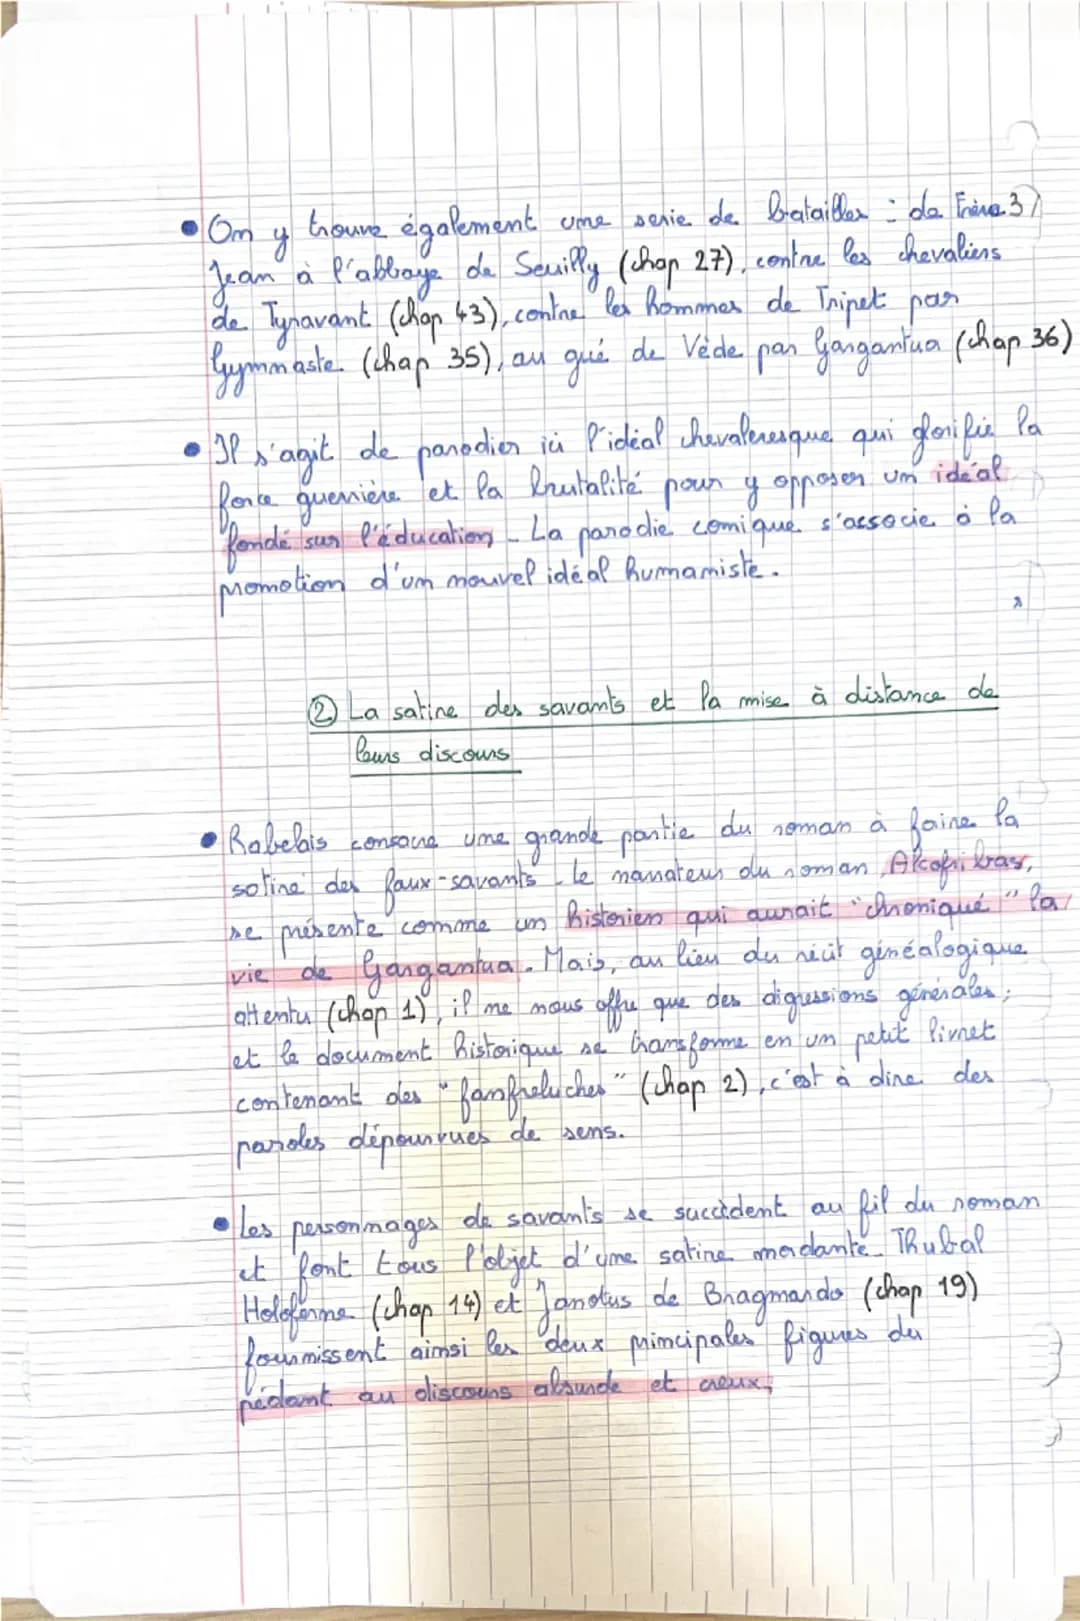 • On y trouve également une serie de batailles : de Frère 3/
Jean à l'abbaye de Seuilly (chap 27), contre les chevaliers
de Tyravant (chap 43), contre les hommes de Tripet par
Gymnaste (chap 35), au gué de Vède par Gargantua (chap 36)
• Il s'agit de parodier ici l'idéal chevaleresque qui glorifie la
force guerrière et la brutalité pour y opposer un idéal
fondé sur l'éducation. La parodie comique s'associe à la
promotion d'un nouvel idéal humaniste.
② La satire des savants et la mise à distance de
leurs discours
• Rabelais consacre une grande partie du roman à faire la
satire des faux-savants. Le narrateur du roman, Alcofribas,
se présente comme un historien qui aurait "chroniqué" la
vie de Gargantua. Mais, au lieu du récit généalogique
attentu (chap 1), il ne nous offre que des digressions générales ;
et le document historique se transforme en un petit livret
contenant des "fanfreluches" (chap 2), c'est à dire des
paroles dépourvues de sens.
• Les personnages de savants se succèdent au fil du roman
et font tous l'objet d'une satire mordante. Thubal
Holoferme (chap 14) et Janotus de Bragmardo (chap 19)
fournissent ainsi les deux principales figures du
pédant au discours absurde et creux,